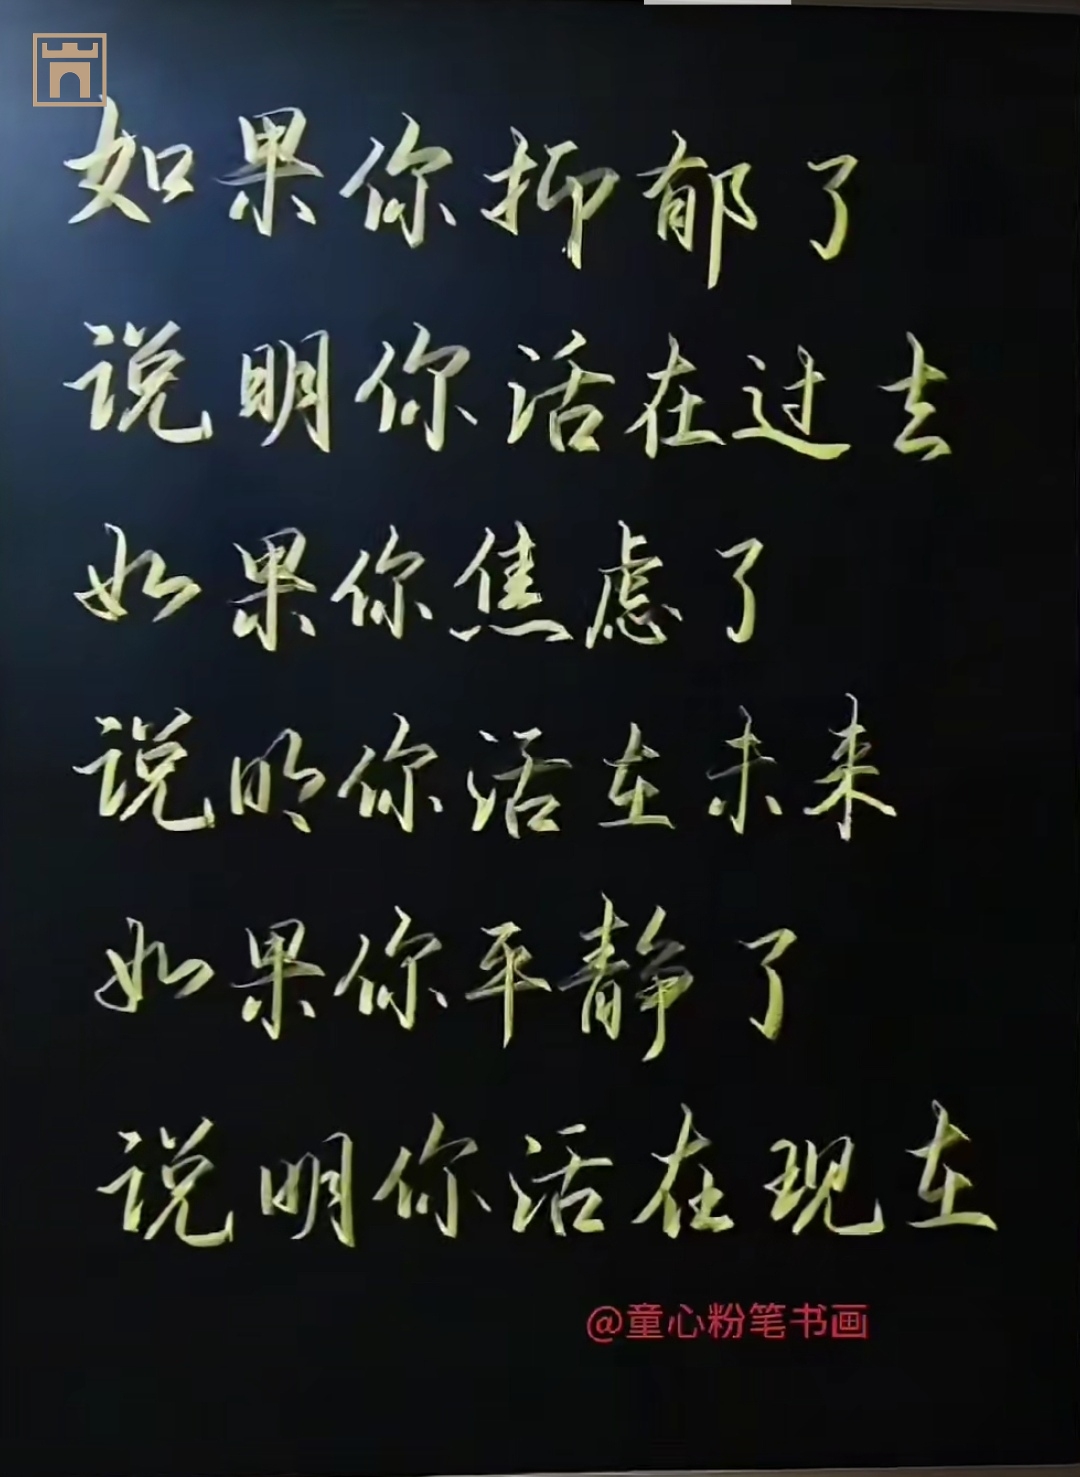 如果你抑郁了
说明你活在过去
如果你焦虑了
说明你活在未来
如果你平静了
说明你活在现在
@童心粉笔书画